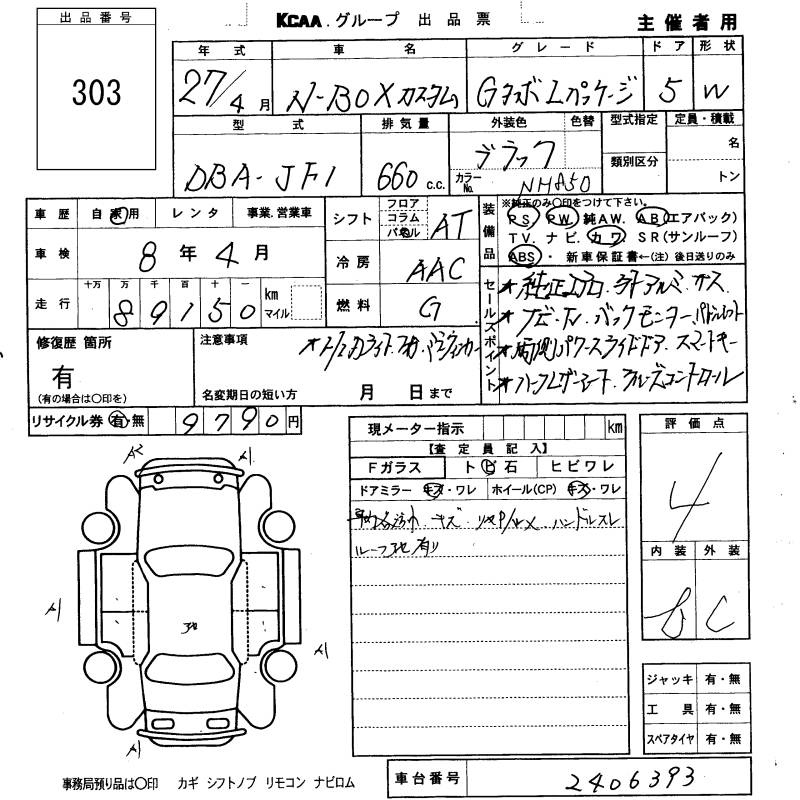 出品番号
303
KCAA.グループ 出品票
主催者用
年式 車名 グレード ドア 形状
27/4月 N-BOXカスタム GターボLパッケージ 5 W
型式 排気量 外装色 色替 型式指定 定員・積載
DBA-JF1 660 c.c. ブラック 類別区分 名
カラーNo. NH850 トン
車歴 自家用 レンタ 事業.営業車
シフト フロア コラム パネル AT
車検 8年4月
冷房 AAC
走行 十万 万 千 百 十 一 km マイル
89150
燃料 G
装備品
※純正のみ○印をつけて下さい。
PS PW 純AW. AB(エアバック)
TV. ナビ. カワ. SR(サンルーフ)
ABS・ 新車保証書←(注)後日送りのみ
セールスポイント
★純正エアロ
★ナビ・TV バックモニター パドルシフト
★両側パワースライドドア スマートキー
★ハーフレザーシート クルーズコントロール
修復歴 箇所
有
(有の場合は○印を)
注意事項
名変期日の短い方 月 日まで
リサイクル券 有 無 9790円
現メーター指示 km
【査定員記入】
Fガラス トビ石 ヒビワレ
ドアミラー キズ・ワレ ホイール(CP) キズ・ワレ
キズ
ルーフ 有り
評価点
4
内装 外装
B C
A1
A1
A1
A1
ジャッキ 有・無
工具 有・無
スペアタイヤ 有・無
事務局預り品は○印 カギ シフトノブ リモコン ナビロム
車台番号 2406393